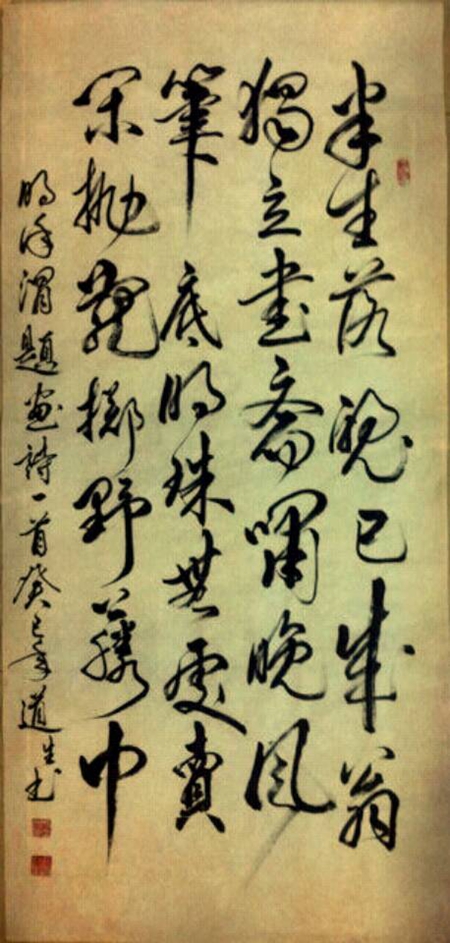 半生落魄已成翁
獨立書齋嘯晚風
筆底明珠無處賣
閑抛閑擲野藤中
明徐渭題畫詩一首癸巳年道生書